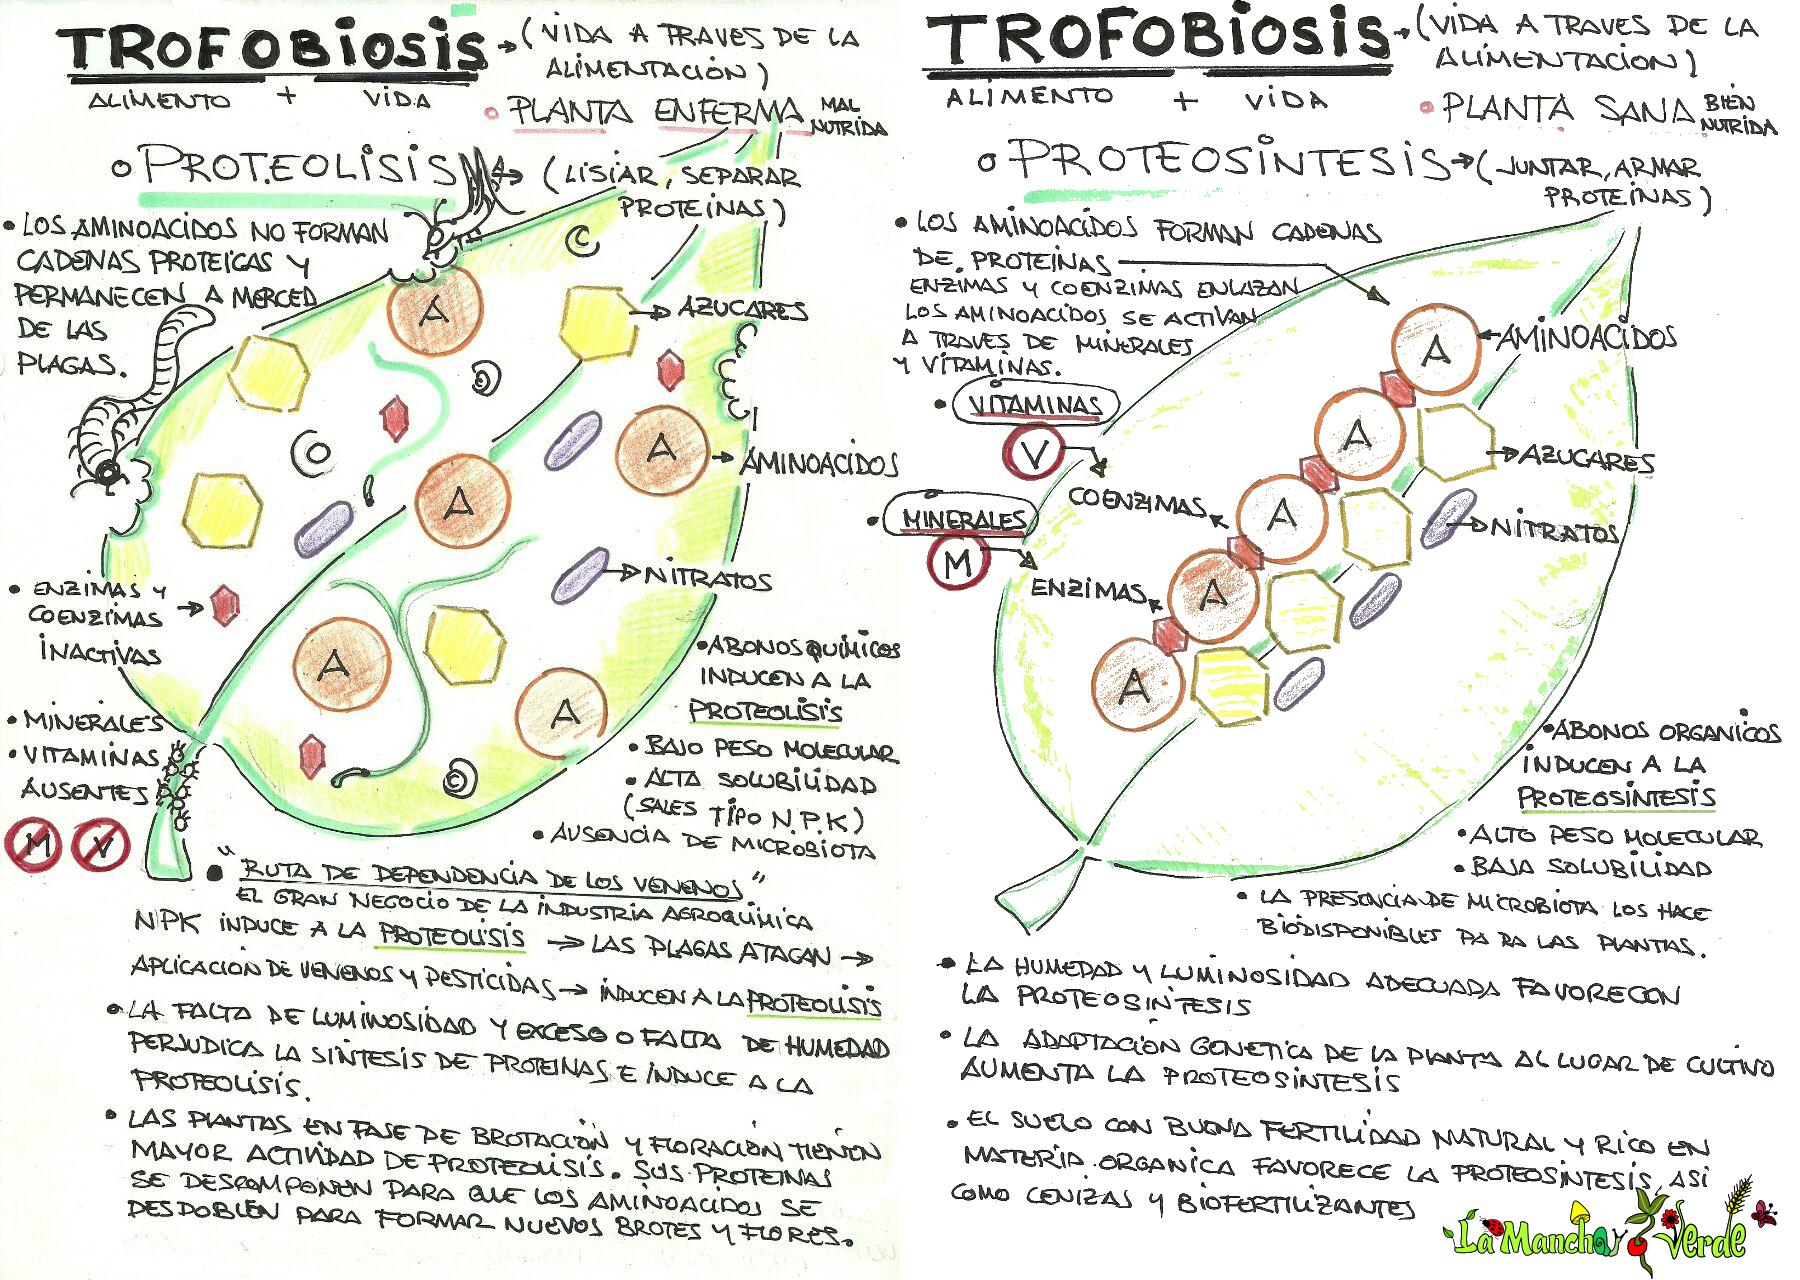 TROFOBIOSIS → (VIDA A TRAVES DE LA
ALIMENTACIÓN)
ALIMENTO + VIDA
• PLANTA ENFERMA MAL
NUTRIDA
o PROTEOLISIS → (LISIAR, SEPARAR
PROTEINAS)
• LOS AMINOACIDOS NO FORMAN
CADENAS PROTEICAS Y
PERMANECEN A MERCED
DE LAS
PLAGAS.
A
C
→ AZUCARES
A
→ AMINOACIDOS
A
→ NITRATOS
• ENZIMAS Y
COENZIMAS →
INACTIVAS
A
A
• MINERALES
• VITAMINAS
AUSENTES
M V
©
• ABONOS QUIMICOS
INDUCEN A LA
PROTEOLISIS
• BAJO PESO MOLECULAR
• ALTA SOLUBILIDAD
(SALES TIPO N.P.K)
• AUSENCIA DE MICROBIOTA
• "RUTA DE DEPENDENCIA DE LOS VENENOS"
EL GRAN NEGOCIO DE LA INDUSTRIA AGROQUIMICA
NPK INDUCE A LA PROTEOLISIS → LAS PLAGAS ATACAN →
APLICACIÓN DE VENENOS Y PESTICIDAS → INDUCEN A LA PROTEOLISIS
• LA FALTA DE LUMINOSIDAD Y EXCESO O FALTA DE HUMEDAD
PERJUDICA LA SINTESIS DE PROTEINAS E INDUCE A LA
PROTEOLISIS.
• LAS PLANTAS EN FASE DE BROTACION Y FLORACION TIENEN
MAYOR ACTIVIDAD DE PROTEOLISIS. SUS PROTEINAS
SE DESCOMPONEN PARA QUE LOS AMINOACIDOS SE
DESDOBLEN PARA FORMAR NUEVOS BROTES Y FLORES.
TROFOBIOSIS → (VIDA A TRAVES DE LA
ALIMENTACION)
ALIMENTO + VIDA
• PLANTA SANA BIEN
NUTRIDA
o PROTEOSINTESIS → (JUNTAR, ARMAR
PROTEINAS)
• LOS AMINOACIDOS FORMAN CADENAS
DE PROTEINAS
ENZIMAS Y COENZIMAS ENLAZAN
LOS AMINOACIDOS SE ACTIVAN
A TRAVES DE MINERALES
Y VITAMINAS.
A
AMINOACIDOS
• VITAMINAS
V
COENZIMAS
A
→ AZUCARES
• MINERALES
M
ENZIMAS
A
→ NITRATOS
A
A
• ABONOS ORGANICOS
INDUCEN A LA
PROTEOSINTESIS
• ALTO PESO MOLECULAR
• BAJA SOLUBILIDAD
• LA PRESENCIA DE MICROBIOTA LOS HACE
BIODISPONIBLES PARA LAS PLANTAS.
• LA HUMEDAD Y LUMINOSIDAD ADECUADA FAVORECEN
LA PROTEOSINTESIS
• LA ADAPTACIÓN GENETICA DE LA PLANTA AL LUGAR DE CULTIVO
AUMENTA LA PROTEOSINTESIS
• EL SUELO CON BUENA FERTILIDAD NATURAL Y RICO EN
MATERIA ORGANICA FAVORECE LA PROTEOSINTESIS, ASI
COMO CENIZAS Y BIOFERTILIZANTES
La Mancha Verde